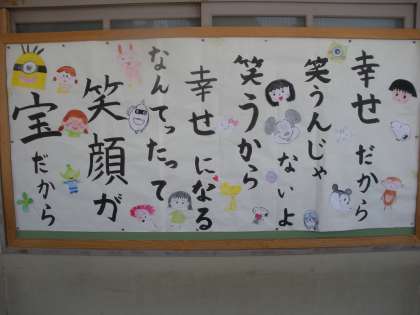 幸せだから
笑うんじゃ
ないよ
笑うから
幸せになる
なんてったって
笑顔が
宝だから